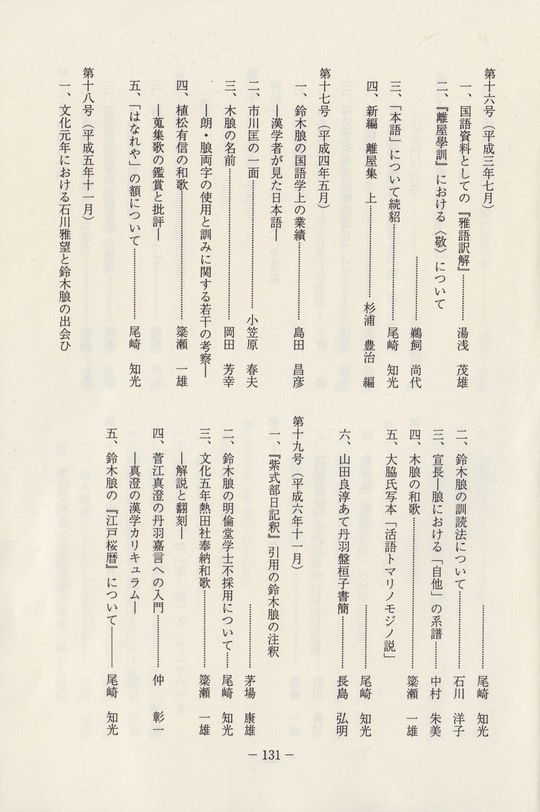 第十六号（平成三年七月）
一、国語資料としての『雅語訳解』………湯浅　茂雄
二、『離屋學訓』における〈敬〉について
………鵜飼　尚代
三、「本語」について続貂………尾崎　知光
四、新編　離屋集　上………杉浦　豊治　編
第十七号（平成四年五月）
一、鈴木朖の国語学上の業績………島田　昌彦
―漢学者が見た日本語―
二、市川匡の一面………小笠原　春夫
三、木朖の名前………岡田　芳幸
―朗・朖両字の使用と訓みに関する若干の考察―
四、植松有信の和歌………簗瀬　一雄
―蒐集歌の鑑賞と批評―
五、「はなれや」の額について………尾崎　知光
第十八号（平成五年十一月）
一、文化元年における石川雅望と鈴木朖の出会ひ
………尾崎　知光
二、鈴木朖の訓読法について………石川　洋子
三、宣長―朖における「自他」の系譜………中村　朱美
四、木朖の和歌………簗瀬　一雄
五、大脇氏写本「活語トマリノモジノ説」
………尾崎　知光
六、山田良淳あて丹羽盤桓子書簡………長島　弘明
第十九号（平成六年十一月）
一、『紫式部日記釈』引用の鈴木朖の注釈
………茅場　康雄
二、鈴木朖の明倫堂学士不採用について………尾崎　知光
三、文化五年熱田社奉納和歌………簗瀬　一雄
―解説と翻刻―
四、菅江真澄の丹羽嘉言への入門………仲　彰一
―真澄の漢学カリキュラム―
五、鈴木朖の『江戸桜暦』について………尾崎　知光
― 131 ―